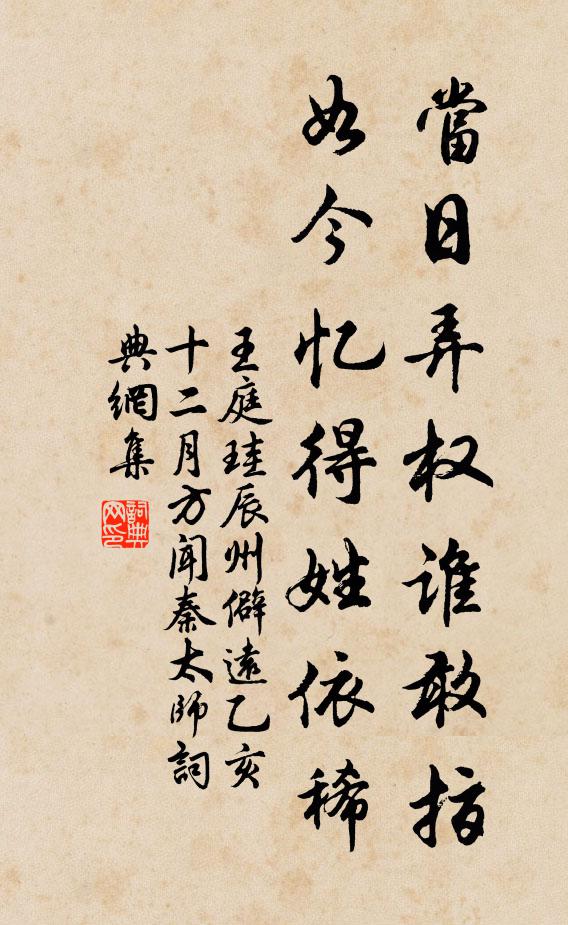 當日弄权谁敢指
如今忆得姓依稀
王庭珪辰州僻遠乙亥
十二月方闻秦太师詞
典網集
詞典
网印